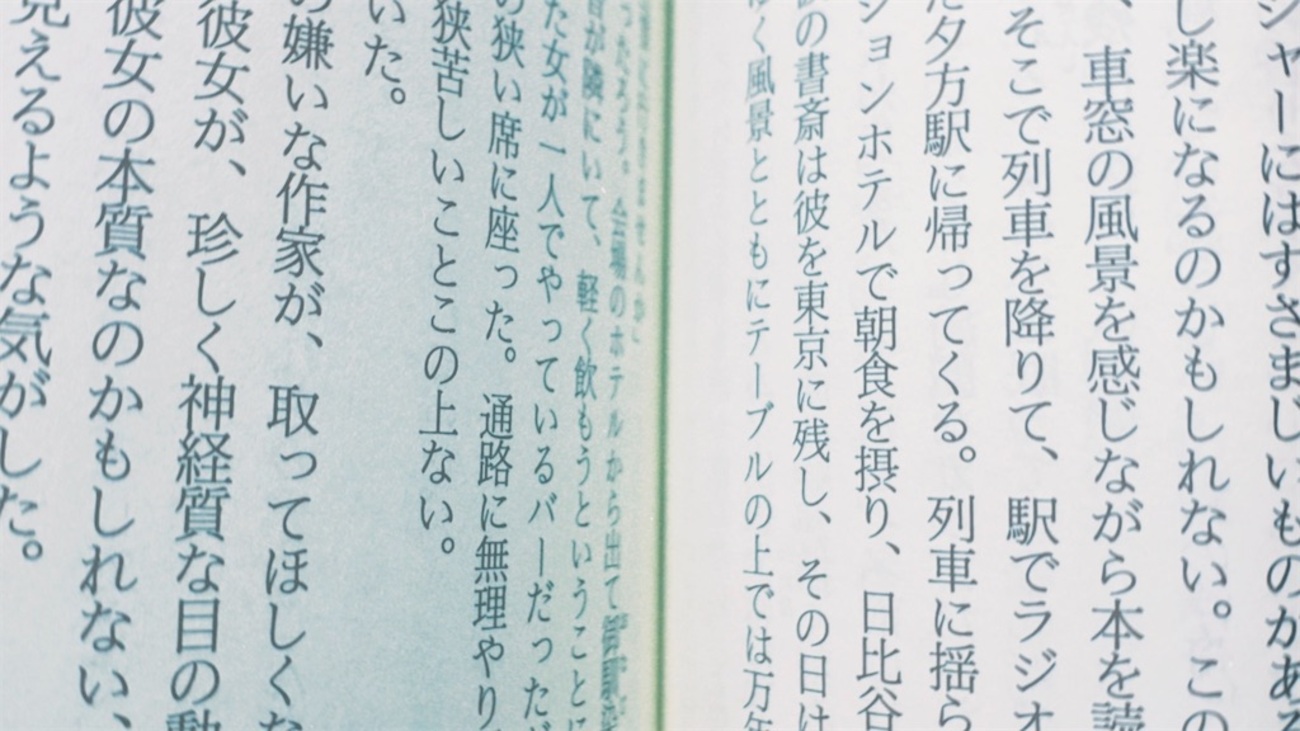 シャーにはすさまじいものがある
し楽になるのかもしれない。この
、車窓の風景を感じながら本を読
そこで列車を降りて、駅でラジオ
た夕方駅に帰ってくる。列車に揺ら
ションホテルで朝食を摂り、日比谷
の書斎は彼を東京に残し、その日は
く風景とともにテーブルの上では万年
会場のホテルから出て
が隣にいて、軽く飲もうということに
た女が一人でやっているバーだったが
の狭い席に座った。通路に無理やり
狭苦しいことこの上ない。
いた。
の嫌いな作家が、取ってほしくな
彼女が、珍しく神経質な目の動
彼女の本質なのかもしれない、
見えるような気がした。